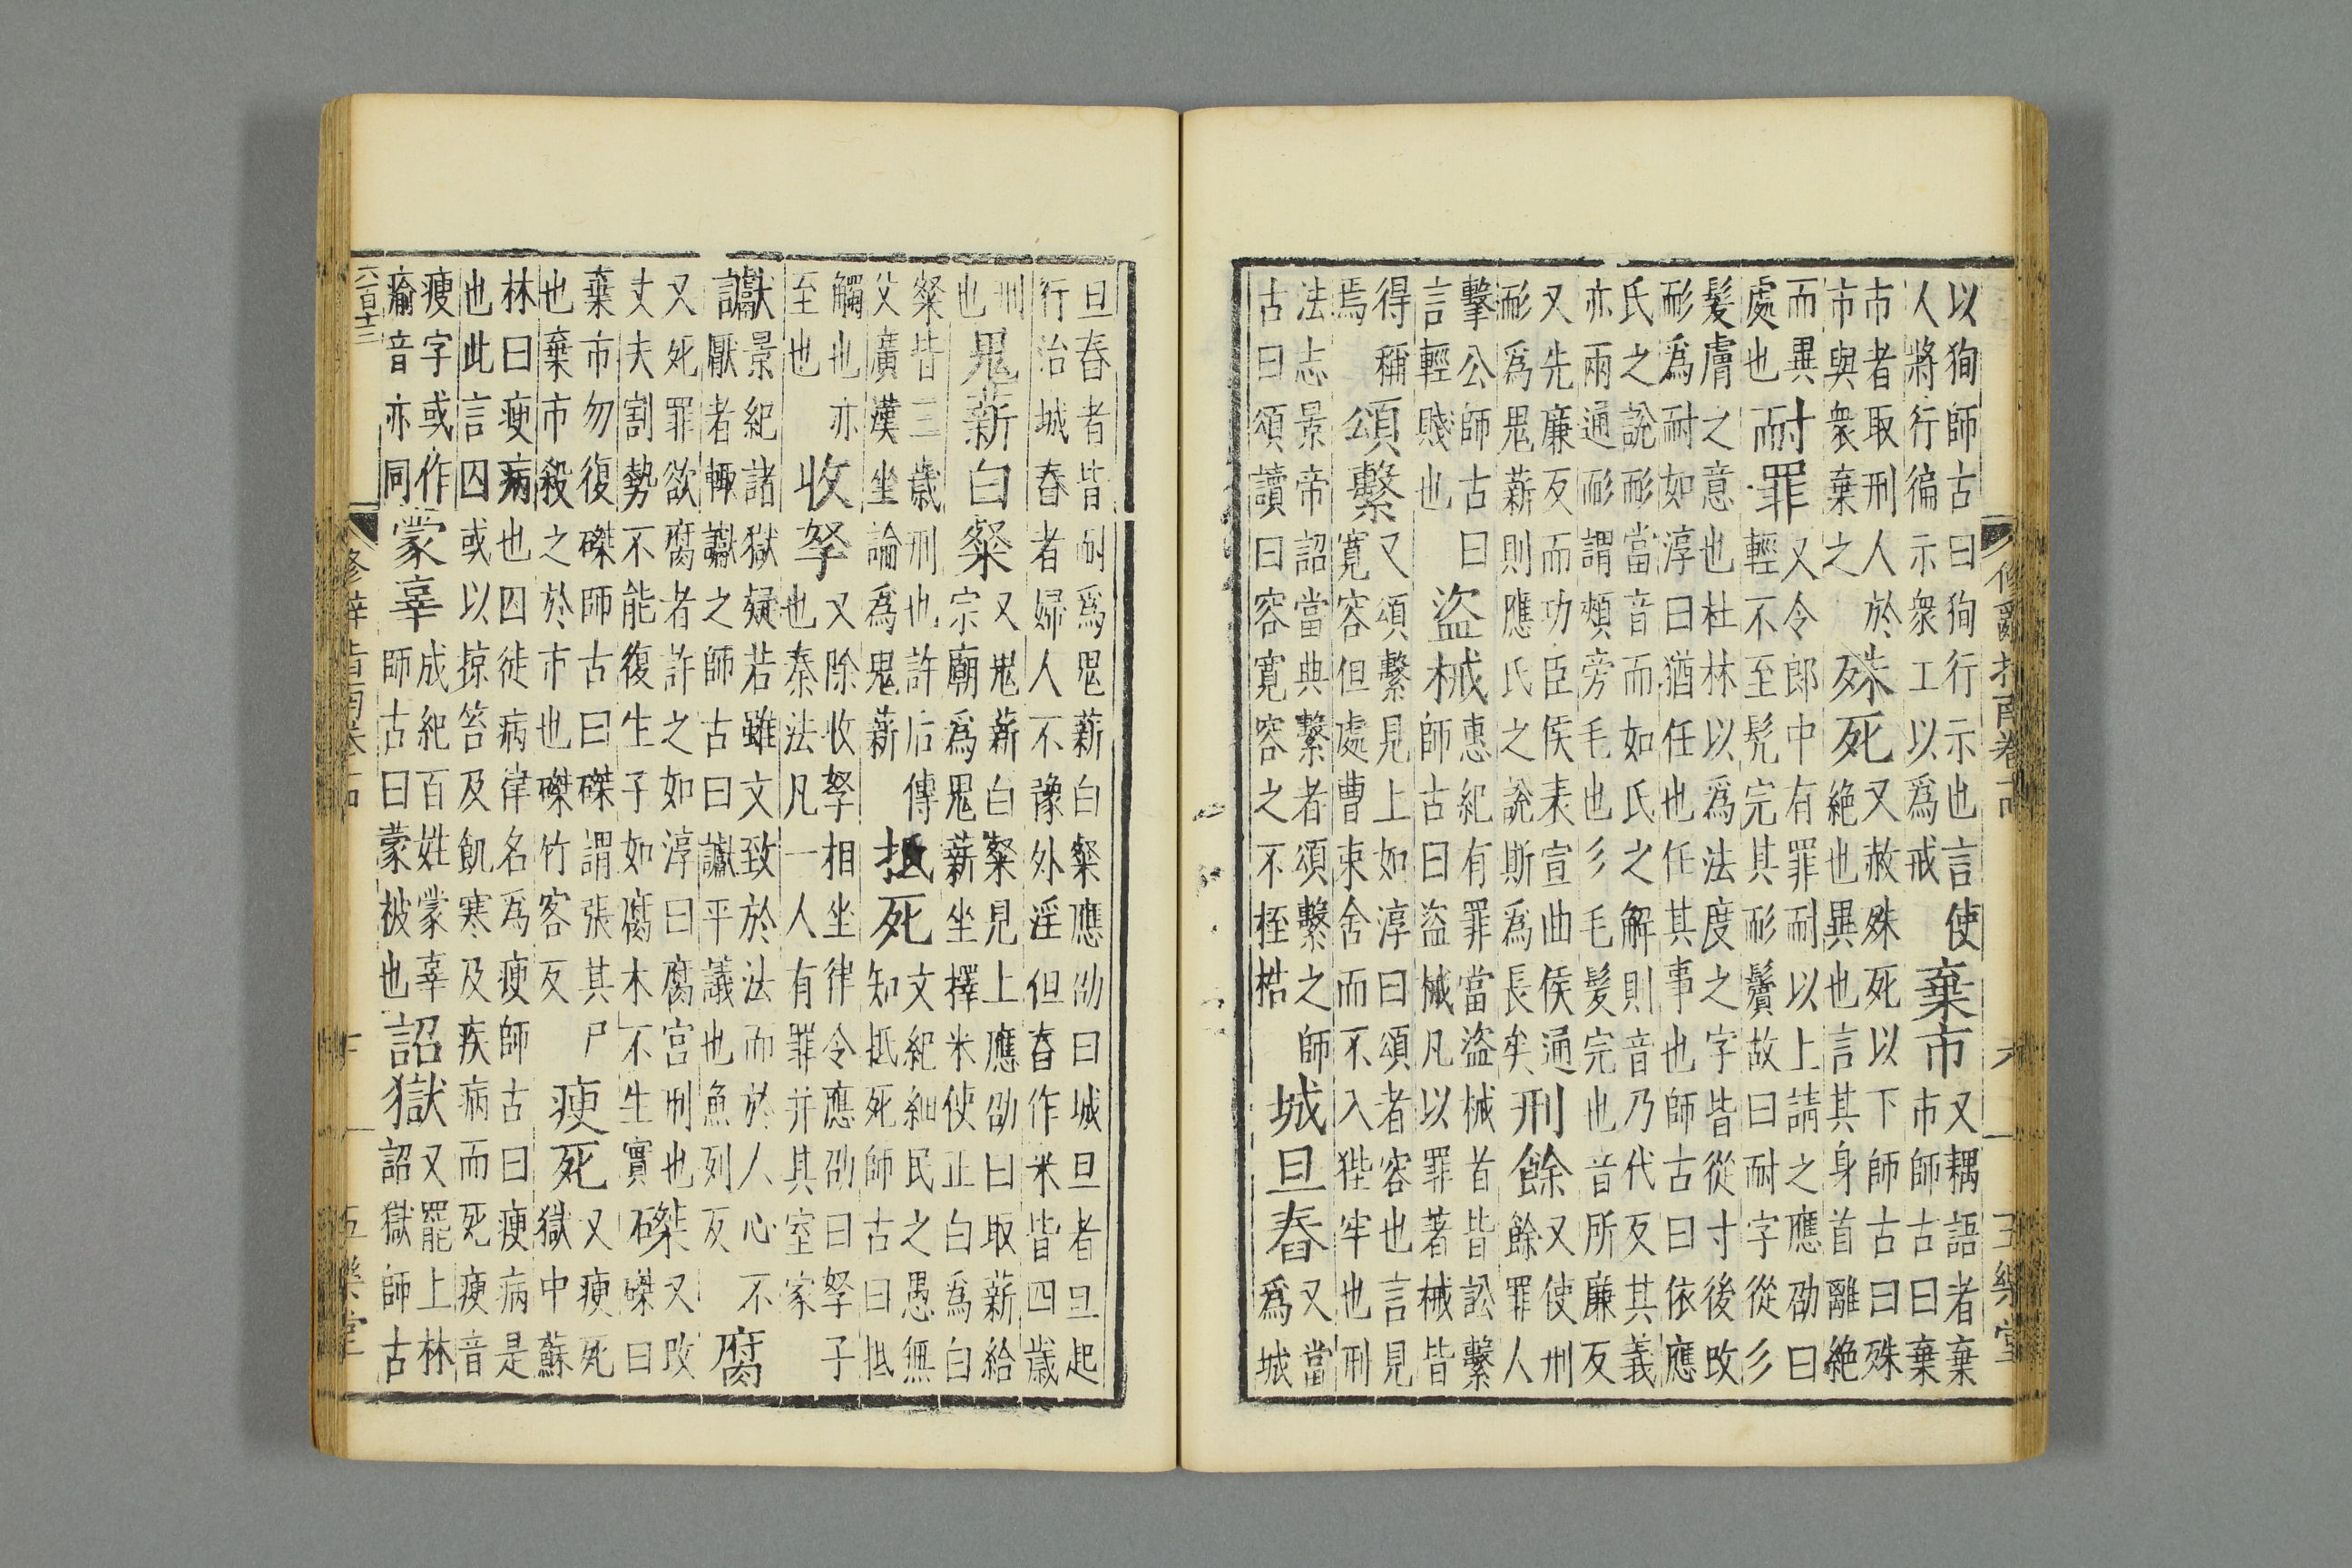 修辭指南卷十四 六 五樂堂
以狥師古曰狥行示也言使
人將行徧示衆工以爲戒
棄市
又耦語者棄
市師古曰棄
市者取刑人於
市與衆棄之
殊死
又赦殊死以下師古曰殊
絶也異也言其身首離絶
而異
處也
耐罪
又令郎中有罪耐以上請之應劭曰
輕不至髠完其耏鬢故曰耐字從彡
髮膚之意也杜林以爲法度之字皆從寸後改
耏爲耐如淳曰猶任也任其事也師古曰依應
氏之說耏當音而如氏之解則音乃代反其義
亦兩通耏謂頰旁毛也彡毛髮完也音所廉反
又先廉反而功臣侯表宣曲侯通
耏爲鬼薪則應氏之說斯爲長矣
刑餘
又使刑
餘罪人
擊公師古曰
言輕賤也
盜械
惠紀有罪當盜械首皆訟繫
師古曰盜械凡以罪著械皆
得稱
焉
頌繫
又頌繫見上如淳曰頌者容也言見
寬容但處曹吏舍而不入狴牢也刑
法志景帝詔當典繫者頌繫之師
古曰頌讀曰容寬容之不桎梏
城旦舂
又當
爲城
旦舂者皆耐爲鬼薪白粲應劭曰城旦者旦起
行治城舂者婦人不豫外淫但舂作米皆四歲
刑
也
鬼薪白粲
又鬼薪白粲見上應劭曰取薪給
宗廟爲鬼薪坐擇米使正白爲白
粲皆三歲刑也許后傳
父廣漢坐論爲鬼薪
抵死
文紀細民之愚無
知抵死師古曰抵
觸也亦
至也
收孥
又除收孥相坐律令應劭曰孥子
也秦法凡一人有罪并其室家
讞
景紀諸獄疑若雖文致於法而於人心不
厭者輒讞之師古曰讞平議也魚列反
腐
又死罪欲腐者許之如淳曰腐宮刑也
丈夫割勢不能復生子如腐木不生實
磔
又改
磔曰
棄市勿復磔師古曰磔謂張其尸
也棄市殺之於市也磔竹客反
瘐死
又瘐死
獄中蘇
林曰瘐病也囚徒病律名爲瘐師古曰瘐病是
也此言囚或以掠笞及飢寒及疾病而死瘐音
瘐字或作
瘉音亦同
蒙辜
成紀百姓蒙辜
師古曰蒙被也
詔獄
又罷上林
詔獄師古
六百十三